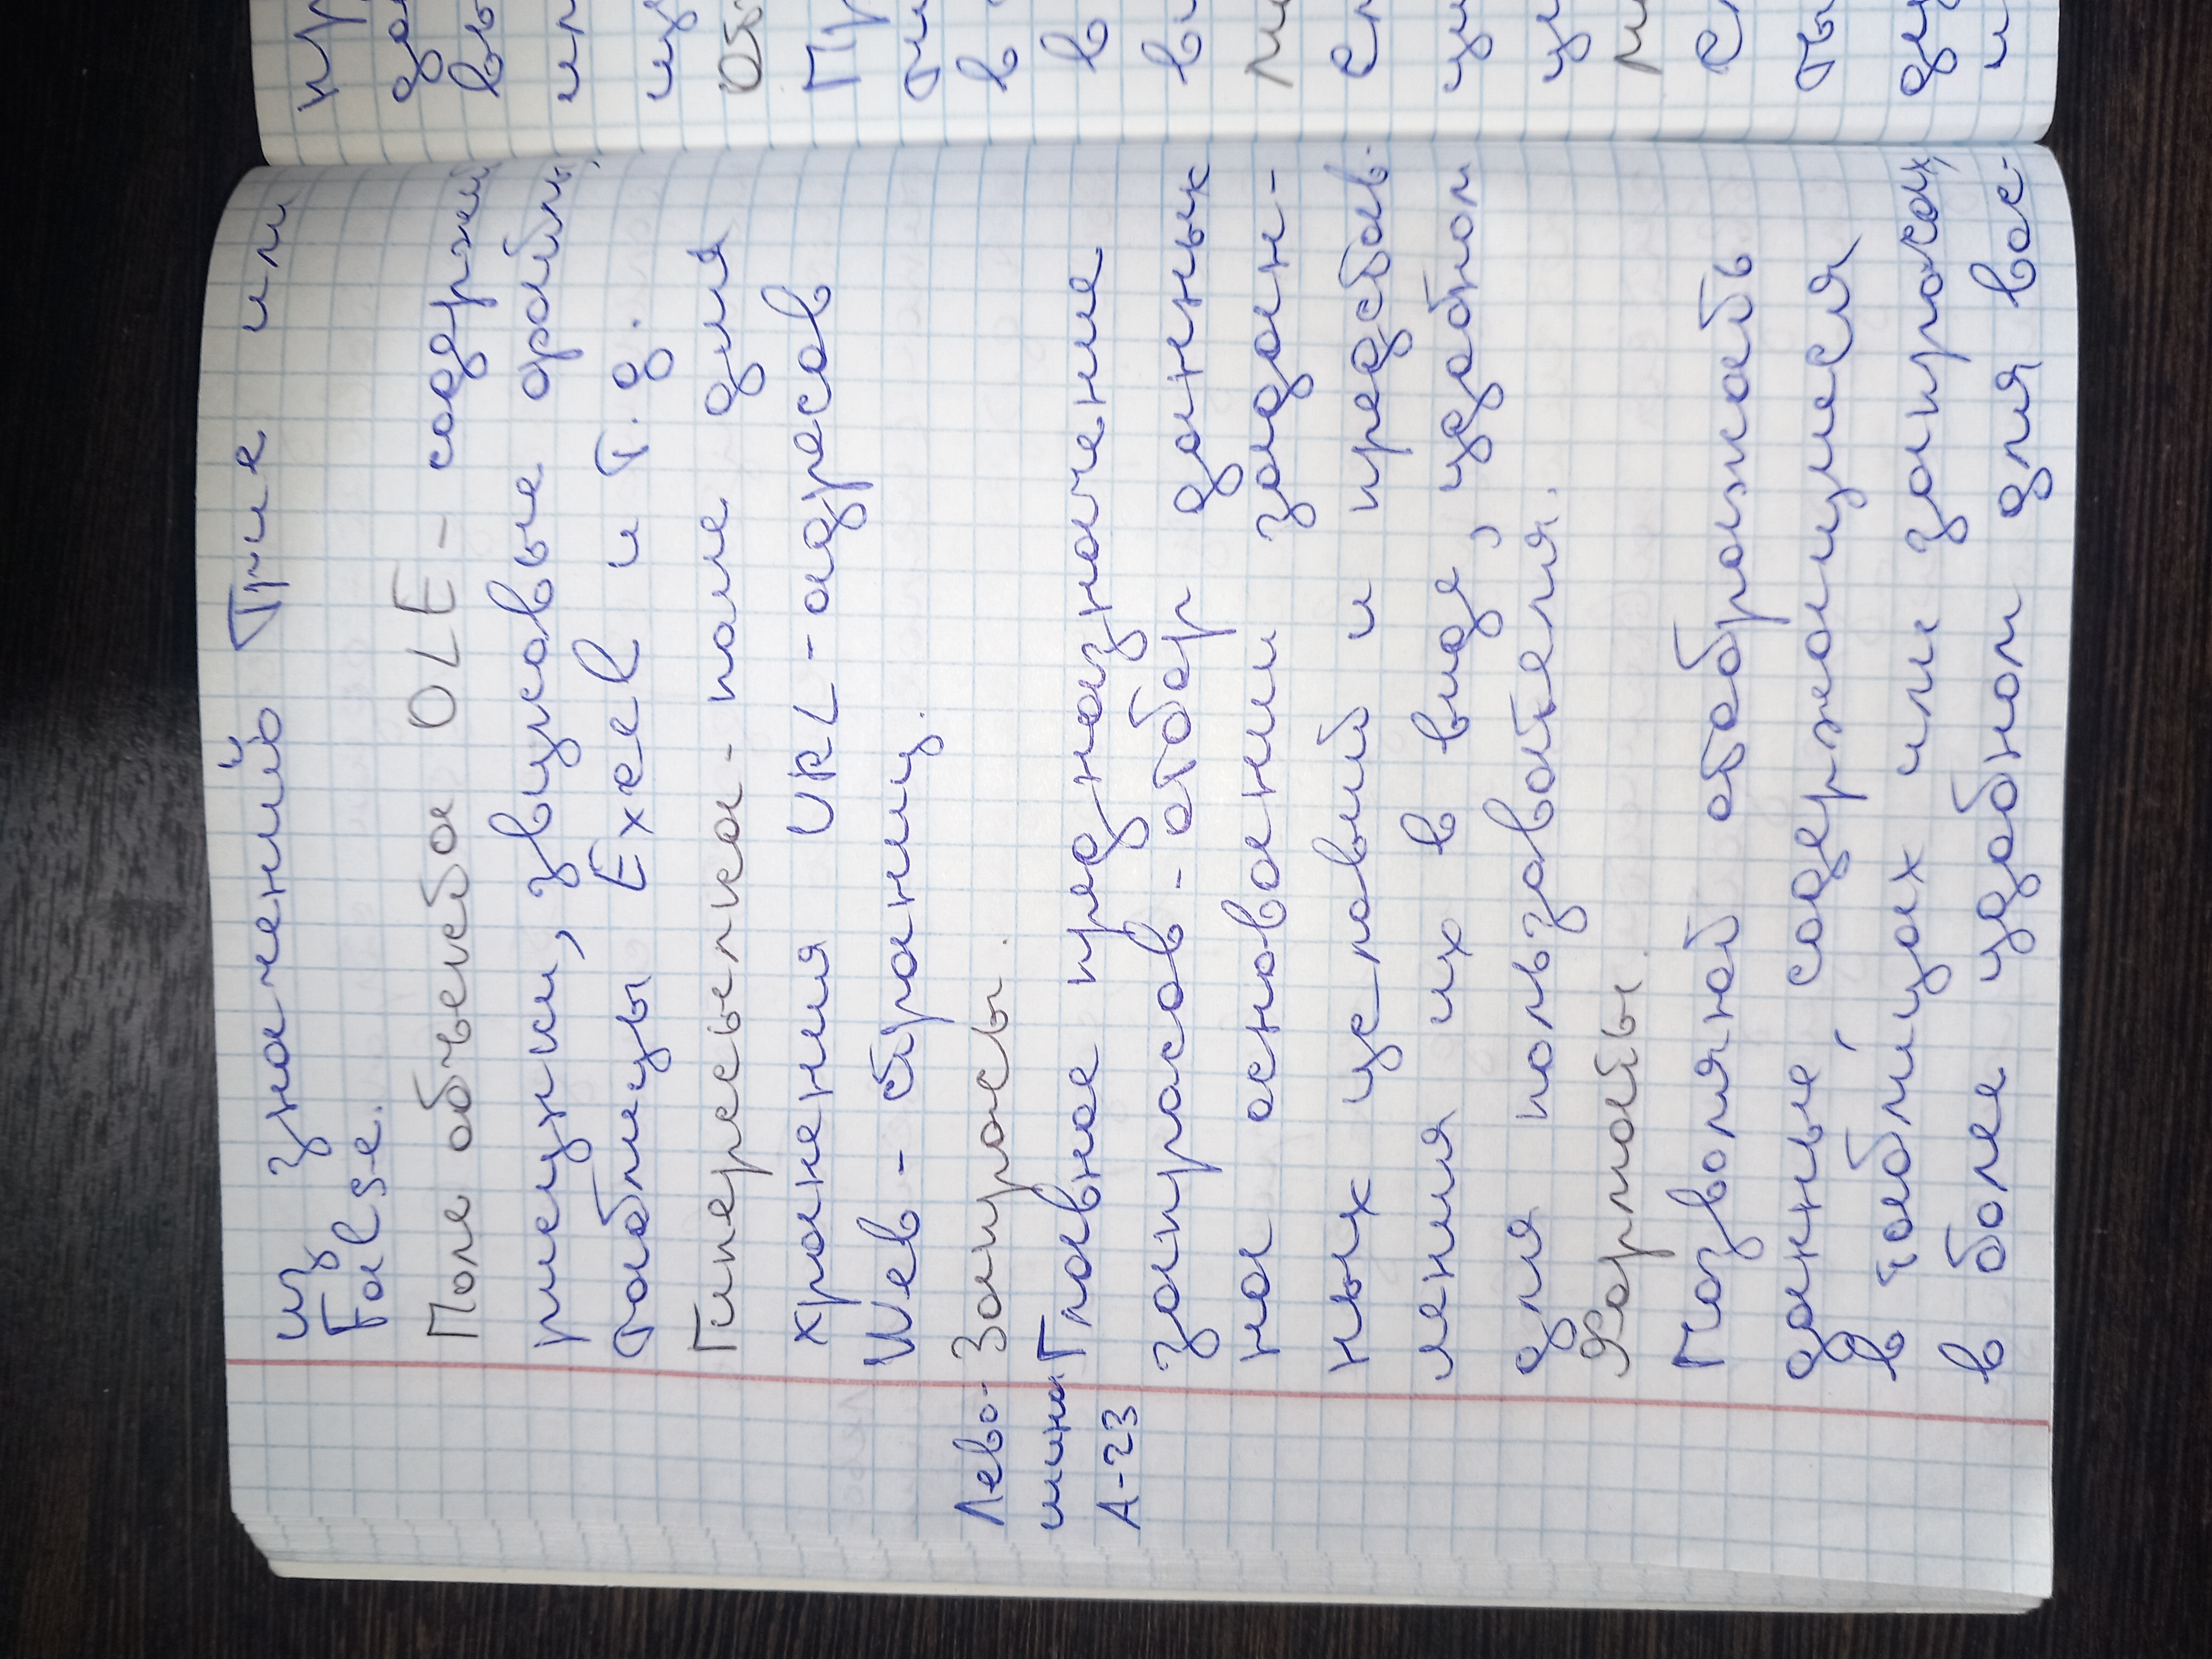 из значений True или
False.
Поле объекта OLE - содержит
рисунки, звуковые файлы,
таблицы Excel и т.д.
Гиперссылка - поле для
хранения URL-адресов
Web - страниц.
Запросы.
Лево-
шина
А-23
Главное предназначение
запросов - отбор данных
на основании задан-
ных условий и представ-
ления их в виде, удобном
для пользователя.
Форматы.
Позволяют отображать
данные содержащиеся
в таблицах или запросах,
в более удобном для вос-